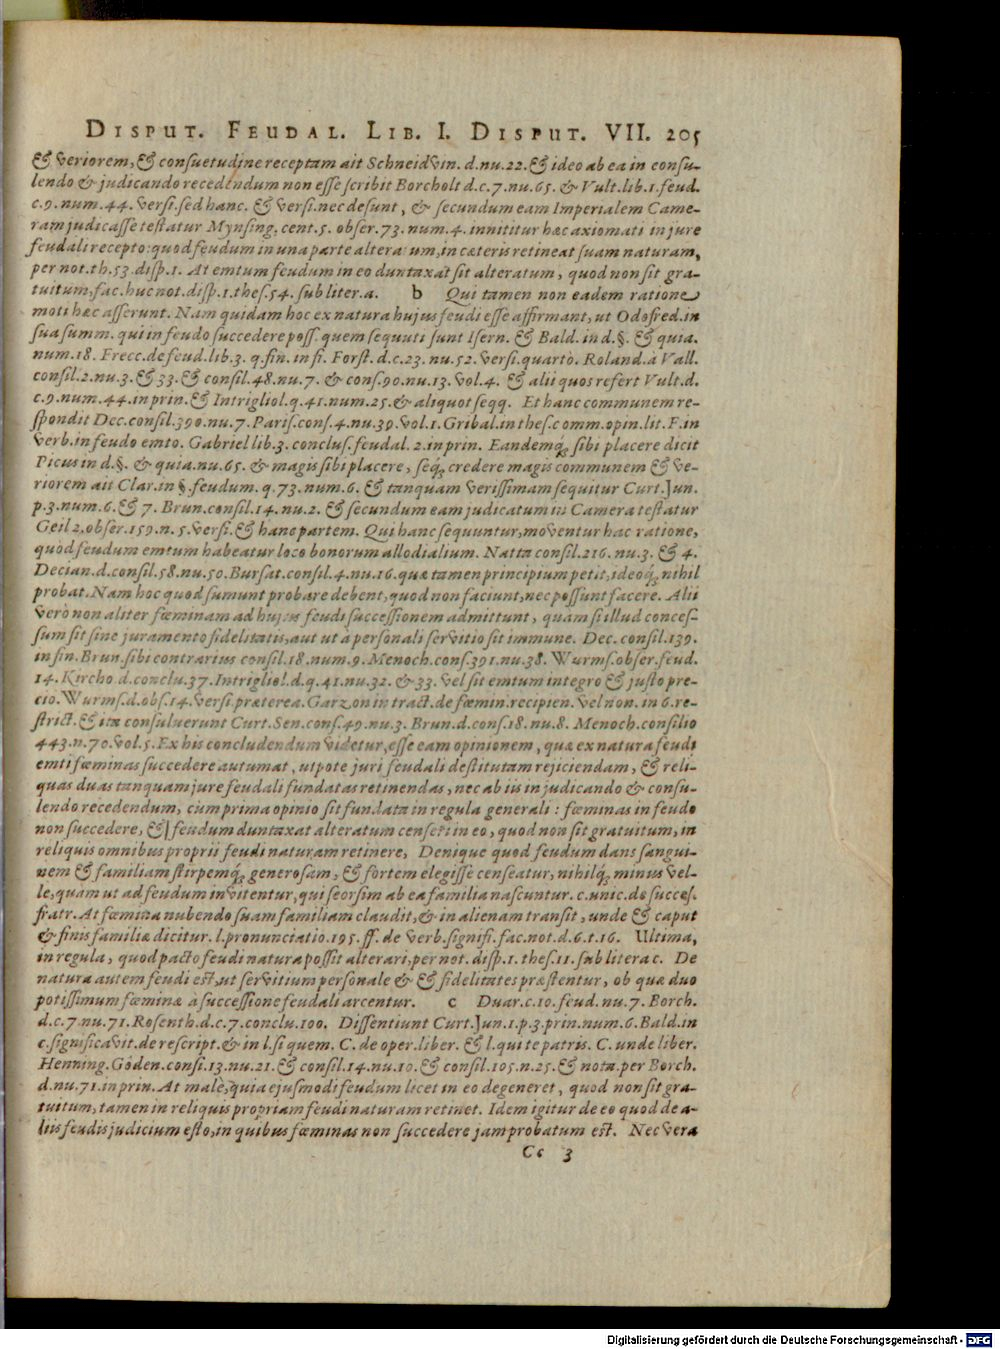 DISPUT. FEUDAL. LIB. I. DISPUT. VII. 205
& veriorem, & consuetudine receptam ait Schneidvin. d. nu. 22. & ideo ab ea in consu-
lendo & judicando recedendum non esse scribit Borcholt d. c. 7. nu. 65. & Vult. lib. 1. feud.
c. 9. num. 44. versi. sed hanc. & versi. nec desunt, & secundum eam Imperialem Came-
ram judicasse testatur Mynsing. cent. 5. obser. 73. num. 4. innititur hæc axiomati in jure
feudali recepto: quod feudum in una parte alteratum, in cæteris retineat suam naturam,
per not. th. 53. disp. 1. At emtum feudum in eo duntaxat sit alteratum, quod non sit gra-
tuitum, fac. huc not. disp. 1. thes. 54. sub liter. a. b Qui tamen non eadem ratione
moti hæc asserunt. Nam quidam hoc ex natura hujus feudi esse affirmant, ut Odofred. in
sua summ. qui in feudo succedere poss. quem sequuti sunt Isern. & Bald. in d. §. & quia.
num. 18. Frecc. de feud. lib. 3. q. fin. in fi. Forst. d. c. 23. nu. 52. versi. quartò. Roland. à Vall.
consil. 2. nu. 3. & 33. & consil. 48. nu. 7. & cons. 90. nu. 13. vol. 4. & alii quos refert Vult. d.
c. 9. num. 44. in prin. & Intrigliol. q. 41. num. 25. & aliquot seqq. Et hanc communem re-
spondit Dec. consil. 390. nu. 7. Paris. cons. 4. nu. 39. vol. 1. Gribal. in thes. comm. opin. lit. F. in
verb. in feudo emto. Gabriel lib. 3. conclus. feudal. 2. in prin. Eandemq́; sibi placere dicit
Picus in d. §. & quia. nu. 65. & magis sibi placere, seq́; credere magis communem & ve-
riorem ait Clar. in §. feudum. q. 73. num. 6. & tanquam verissimam sequitur Curt. Jun.
p. 3. num. 6. & 7. Brun. consil. 14. nu. 2. & secundum eam judicatum in Camera testatur
Geil 2. obser. 159. n. 5. versi. & hanc partem. Qui hanc sequuntur, moventur hac ratione,
quòd feudum emtum habeatur loco bonorum allodialium. Natta consil. 216. nu. 3. & 4.
Decian. d. consil. 58. nu. 50. Bursat. consil. 4. nu. 16. quæ tamen principium petit, ideoq́; nihil
probat. Nam hoc quod sumunt probare debent, quod non faciunt, nec possunt facere. Alii
verò non aliter fœminam ad hujus feudi successionem admittunt, quam si illud conces-
sum sit sine juramento fidelitatis, aut ut à personali servitio sit immune. Dec. consil. 139.
in fin. Brun. sibi contrarius consil. 18. num. 9. Menoch. cons. 391. nu. 38. Wurms. obser. feud.
14. Kircho. d. conclu. 37. Intrigliol. d. q. 41. nu. 32. & 33. vel sit emtum integro & justo pre-
cio. Wurms. d. obs. 14. versi. præterea. Garz on in tract. de fœmin. recipien. vel non. in 6. re-
strict. & ita consuluerunt Curt. Sen. cons. 49. nu. 3. Brun. d. cons. 18. nu. 8. Menoch. consilio
443. n. 70. vol. 5. Ex his concludendum videtur, esse eam opinionem, quæ ex natura feudi
emti fœminas succedere autumat, utpote juri feudali destitutam rejiciendam, & reli-
quas duas tanquam jure feudali fundatas retinendas, nec ab iis in judicando & consu-
lendo recedendum, cùm prima opinio sit fundata in regula generali: fœminas in feudo
non succedere, & feudum duntaxat alteratum censeri in eo, quod non sit gratuitum, in
reliquis omnibus proprii feudi naturam retinere, Denique quod feudum dans sangui-
nem & familiam stirpemq́; generosam, & fortem elegisse censeatur, nihilq́; minus vel-
le, quam ut ad feudum invitentur, qui seorsim ab ea familia nascuntur. c. unic. de succes.
fratr. At fœmina nubendo suam familiam claudit, & in alienam transit, unde & caput
& finis familiæ dicitur. l. pronunciatio. 195. ff. de verb. signifi. fac. not. d. 6. t. 16. Ultima,
in regula, quod pacto feudi natura possit alterari, per not. disp. 1. thes. 11. sub litera c. De
natura autem feudi est, ut servitium personale & & fidelitates præstentur, ob quæ duo
potissimum fœminæ à successione feudali arcentur. c Duar. c. 10. feud. nu. 7. Borch.
d. c. 7. nu. 71. Rosenth. d. c. 7. conclu. 100. Dissentiunt Curt. Jun. 1. p. 3. prin. num. 6. Bald. in
c. significavit. de rescript. & in l. si quem. C. de oper. liber. & l. qui te patris. C. unde liber.
Henning. Göden. consi. 13. nu. 21. & consil. 14. nu. 10. & consil. 105. n. 25. & nota. per Borch.
d. nu. 71. in prin. At malè, quia ejusmodi feudum licet in eo degeneret, quod non sit gra-
tuitum, tamen in reliquis propriam feudi naturam retinet. Idem igitur de eo quod de a-
liis feudis judicium esto, in quibus fœminas non succedere jam probatum est. Nec vera
Cc 3
Digitalisierung gefördert durch die Deutsche Forschungsgemeinschaft - DFG